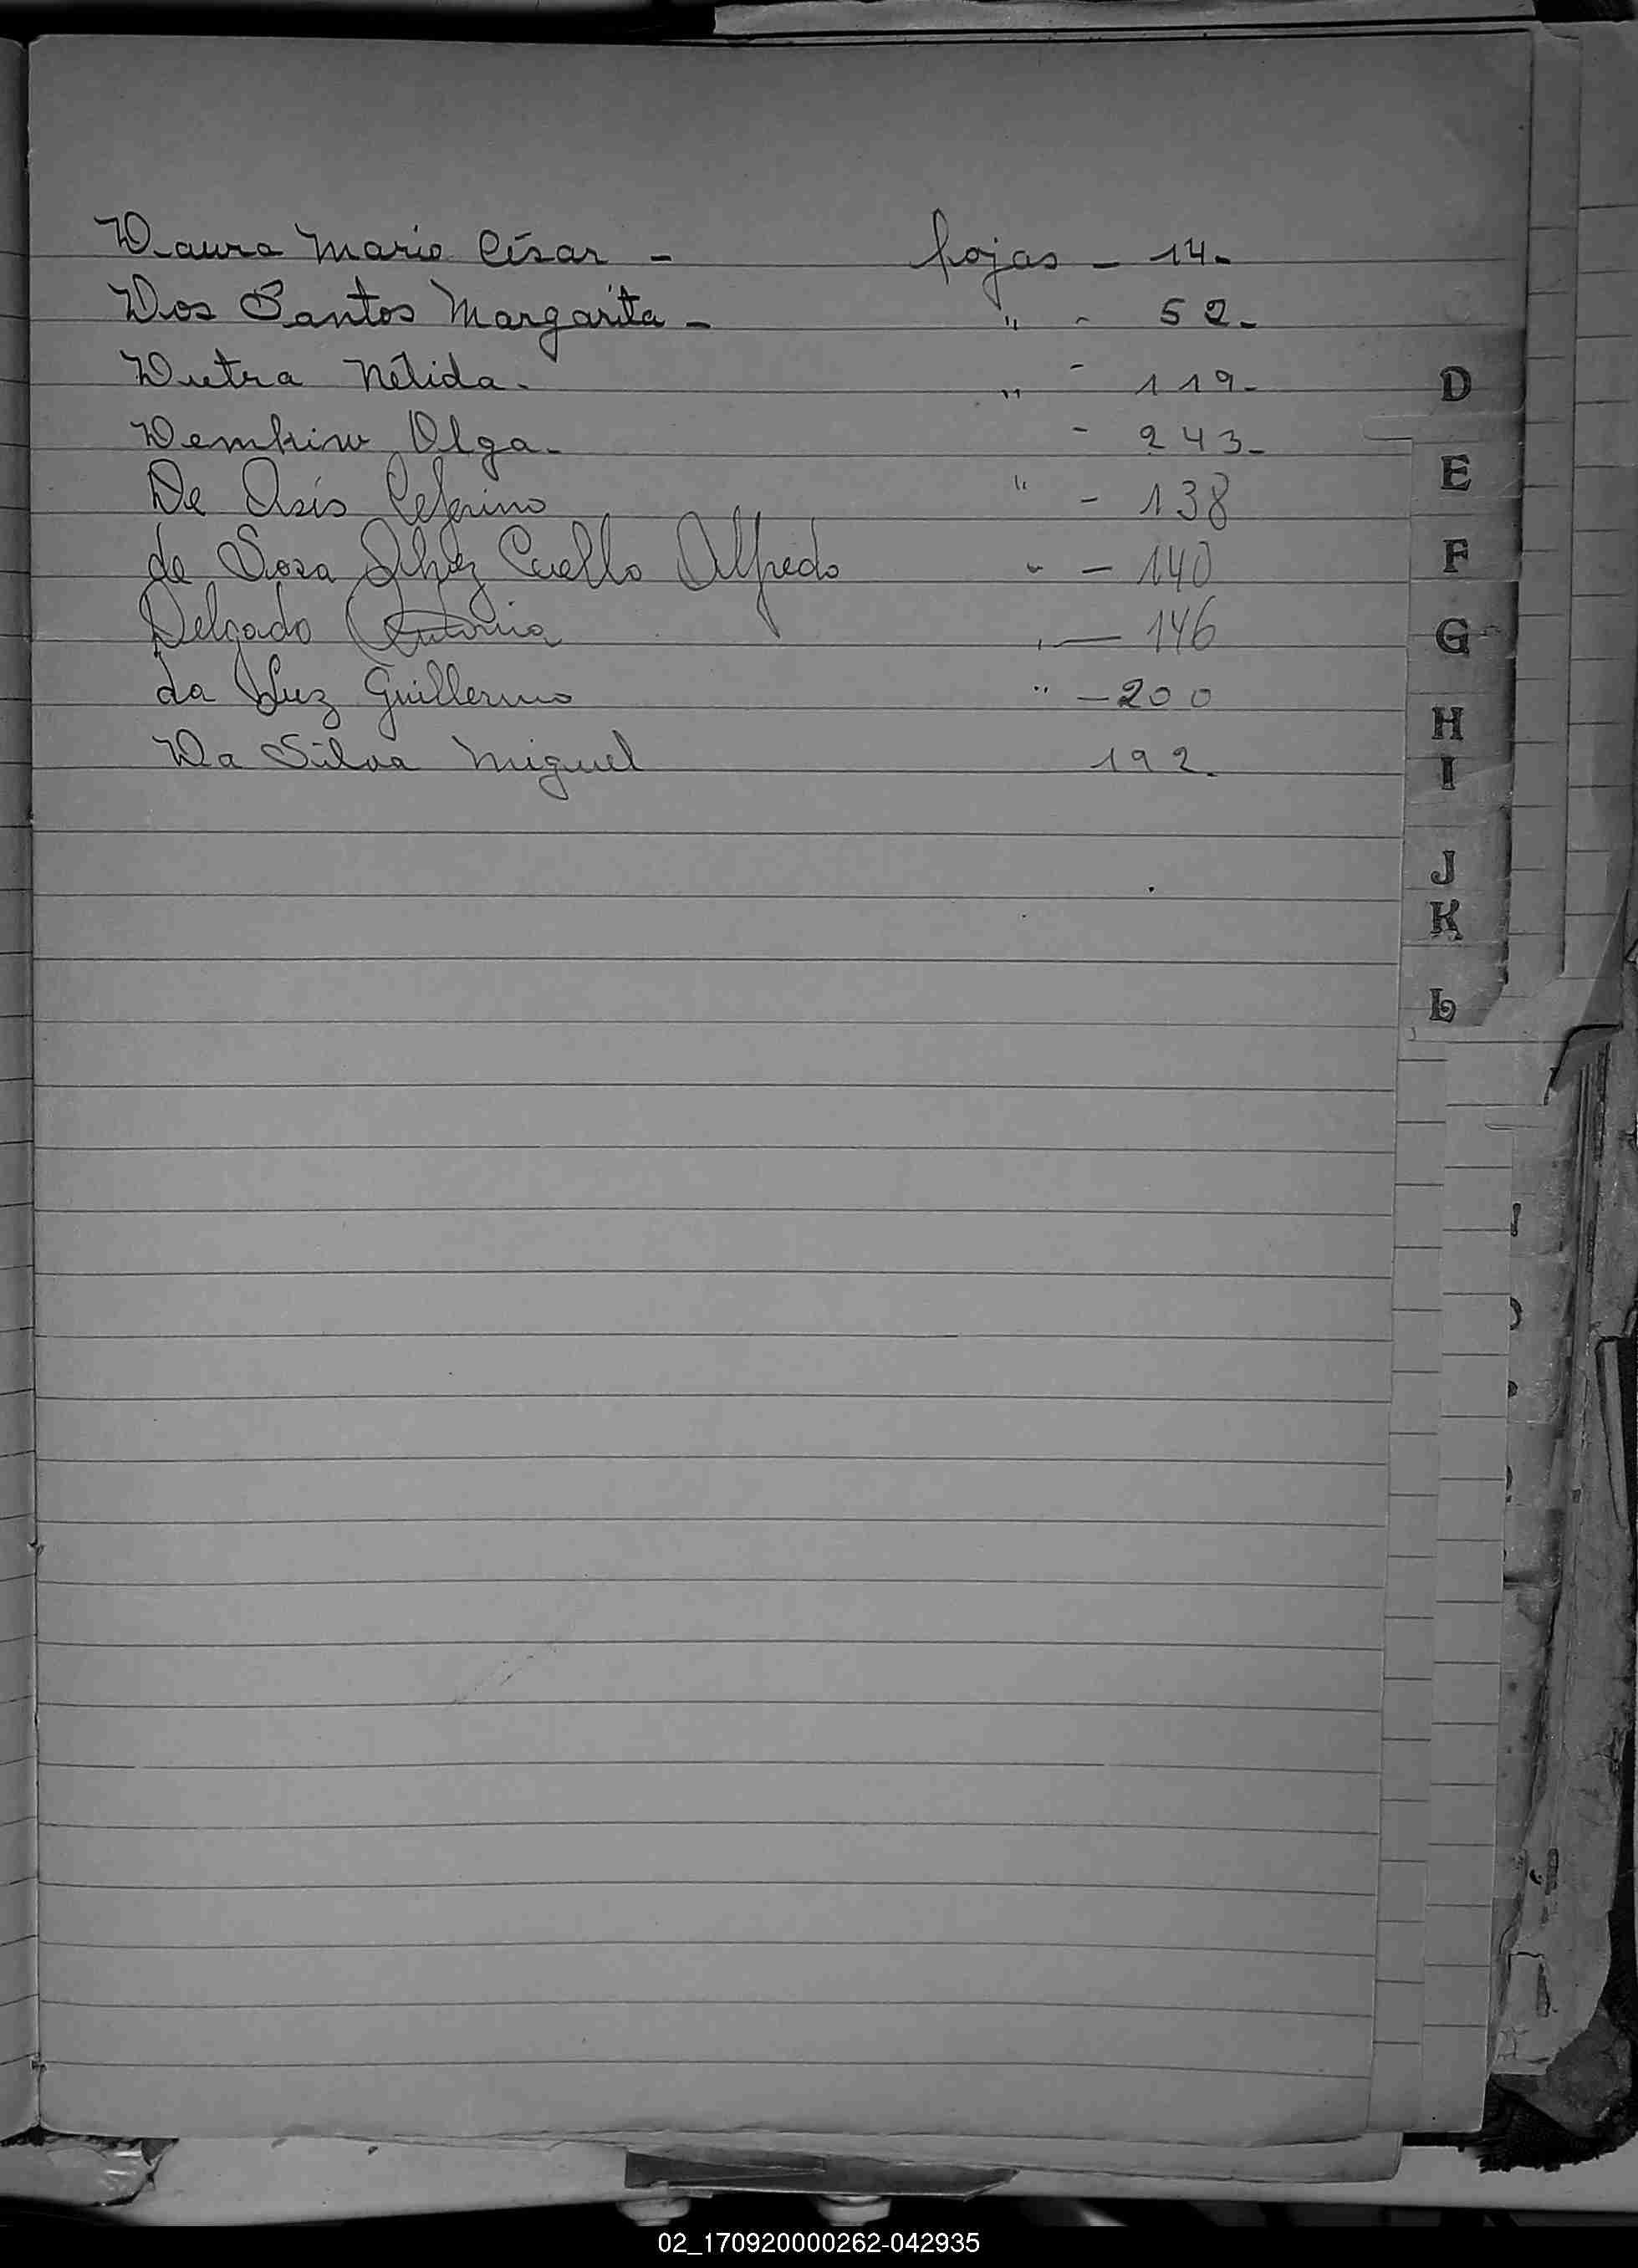 Daura Mario César - fojas - 14-
Dos Santos Margarita - " - 52-
Dutra Nélida- " - 119-
Demkiw Olga- - 243-
De Asís Ceferino " - 138
de Sosa Cuello Alfredo " - 140
Delgado Antonia " - 146
da Luz Guillermo " - 200
Da Silva Miguel 192.
D
E
F
G
H
I
J
K
L
02_170920000262-042935